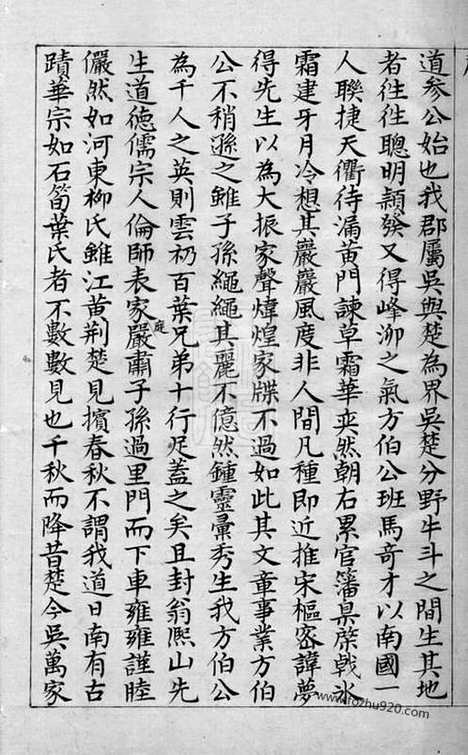 道参公始也我郡屬吳與楚為界吳楚分野牛斗之間生其地
者徃徃聰明頴發又得峰泖之氣方伯公班馬奇才以南國一
人聯捷天衢待漏黄門諫草霜華奕然朝右累官藩臬棨戟氷
霜建牙月冷想其巖巖風度非人間凡種即近推宋樞密諱夢
得先生以為大振家聲煒煌家牒不過如此其文章事業方伯
公不稍遜之雖子孫繩繩其麗不億然鍾靈彚秀生我方伯公
為千人之英則雲礽百葉兄弟十行足盖之矣且封翁熈山先
生道德儒宗人倫師表家嚴庭肅子孫過里門而下車雍雍謹睦
儼然如河東柳氏雖江黄荆楚見擯春秋不謂我道日南有古
蹟華宗如石笥葉氏者不數數見也千秋而降昔楚今吳萬家
www.fozhu920.com